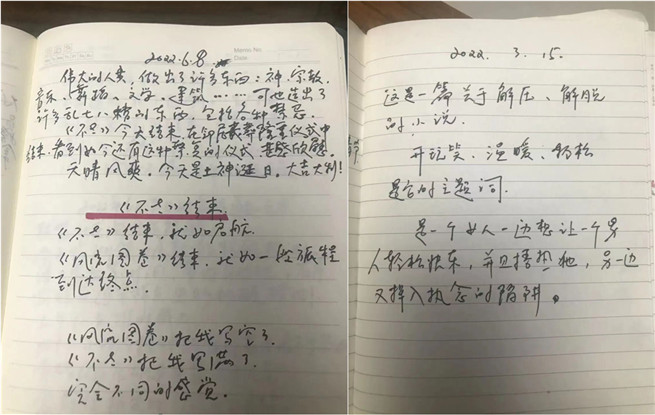 2022.6.8.
Memo No.
Date
伟大的人类，做出了许多东西：神、宗教、
音乐、舞蹈、文学、建筑……可也造出了
许多乱七八糟的东西，包括各种禁忌。
《不去》今天结束，在印尼最隆重仪式中
结束，看到如今还有这种禁忌的仪式，甚感欣慰。
天晴风爽，今天是土神诞日。大吉大利！
《不去》结束
《不去》结束，我如启航
《风流图卷》结束，我如一段旅程
到达终点。
《风流图卷》把我写空了，
《不去》把我写满了，
完全不同的感觉。
2022. 3. 15.
这是一篇关于解压、解脱
的小说。
开玩笑、温暖、轻松
是它的主题词。
是一个女人一边想让一个男
人轻松快乐，并且捂热他，另一边
又掉入执念的陷阱。